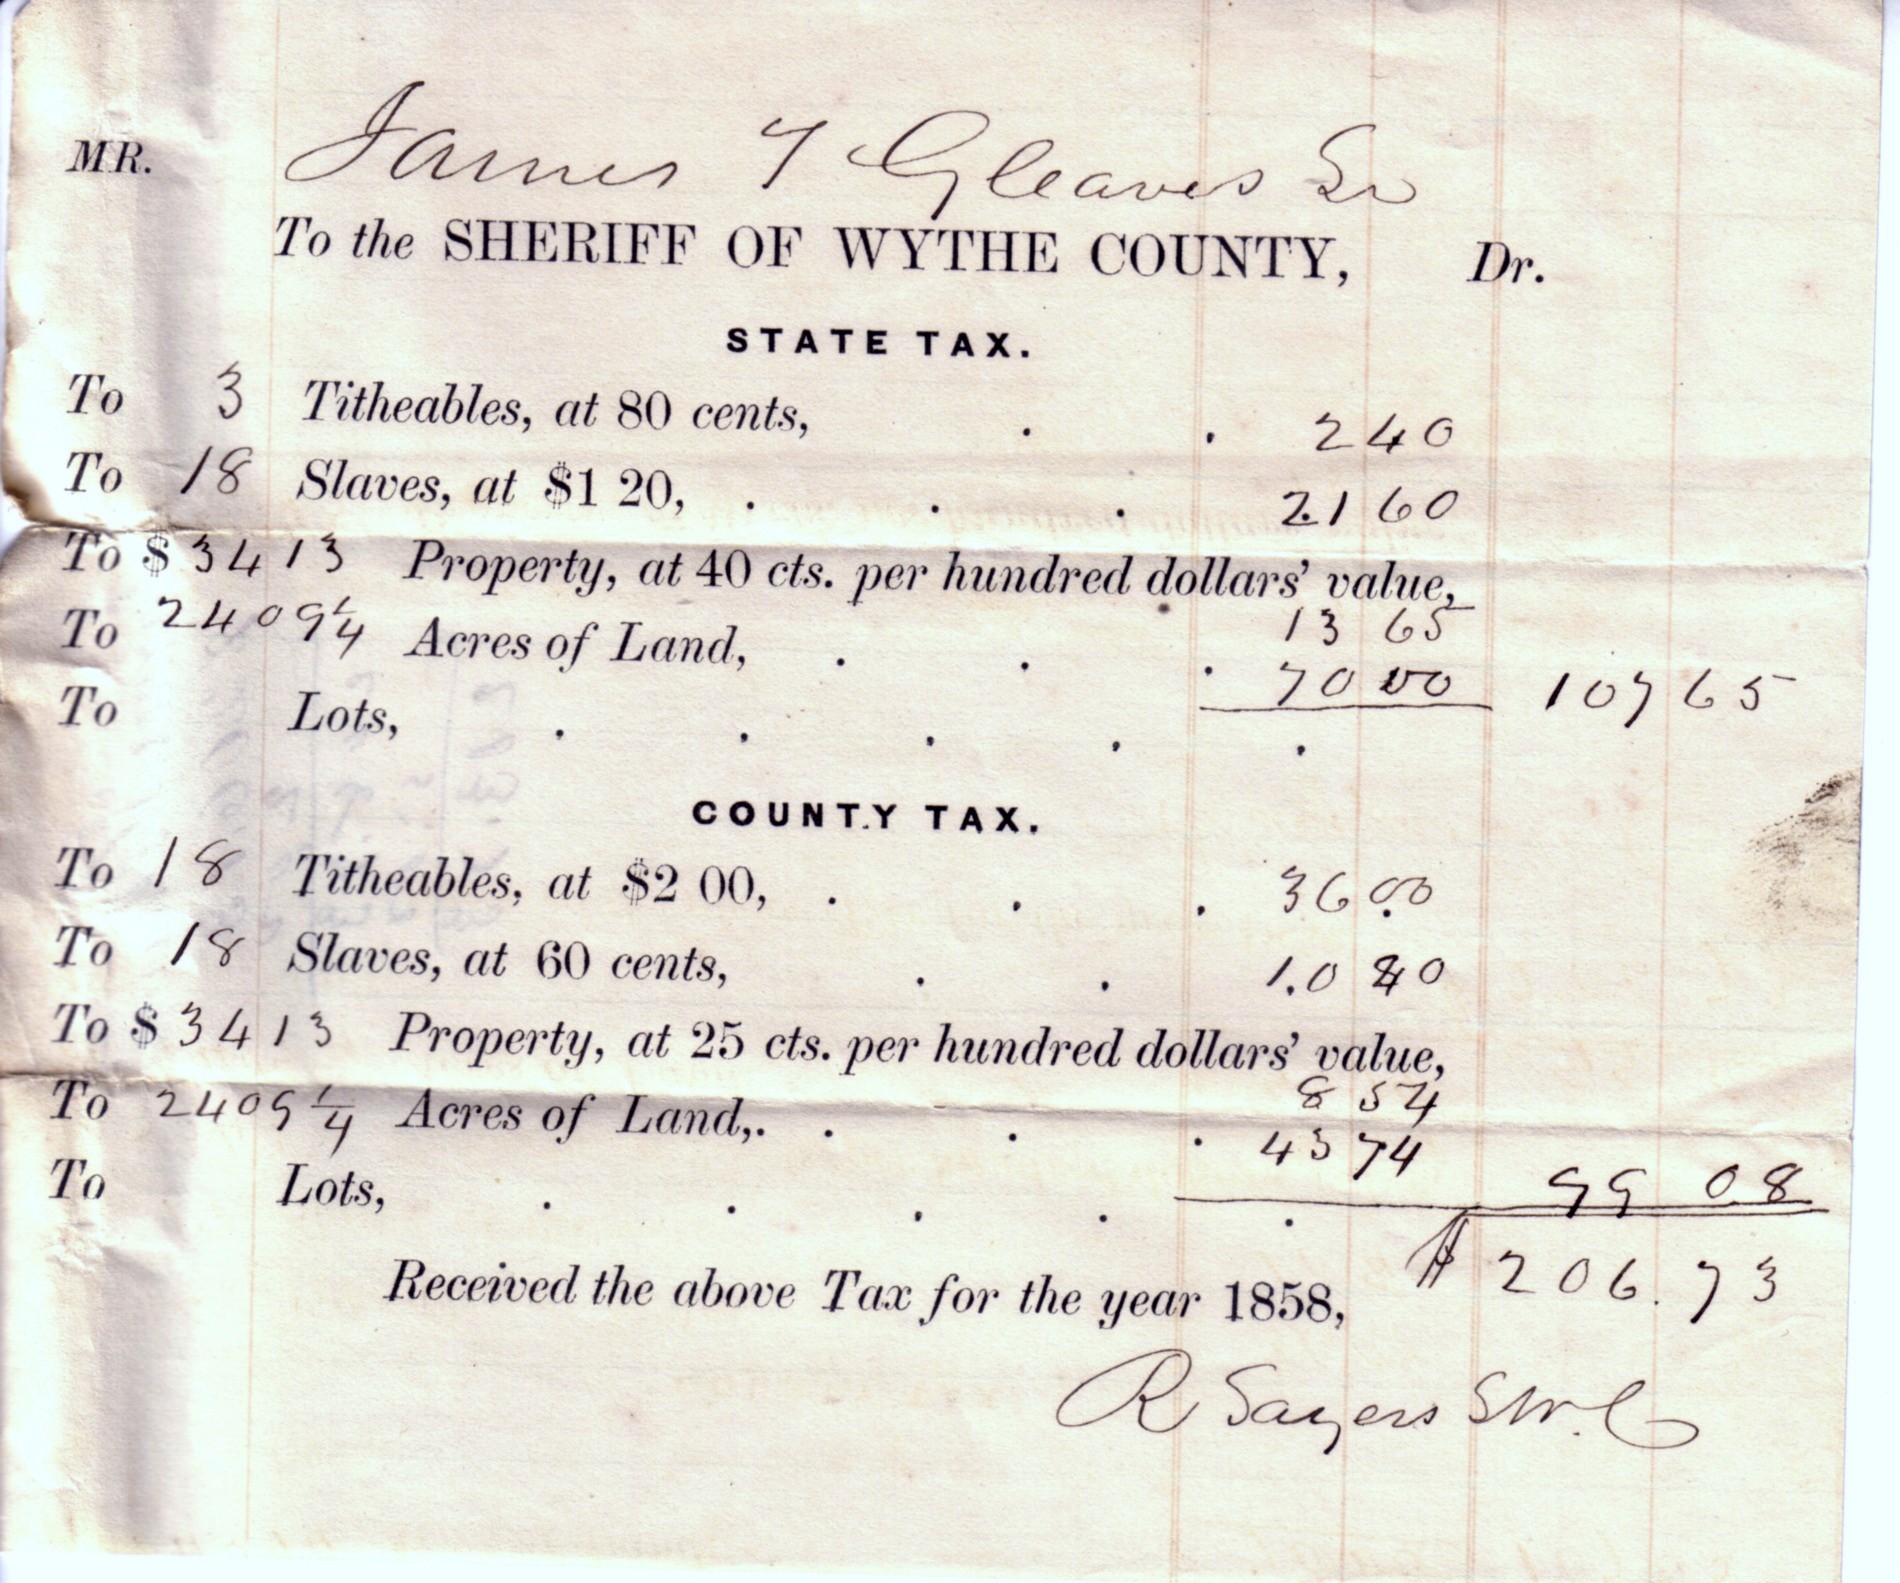 MR. James T Gleaves Sr
To the SHERIFF OF WYTHE COUNTY, Dr.
STATE TAX.
To 3 Titheables, at 80 cents, . . 2 40
To 18 Slaves, at $1 20, . . . 21 60
To $ 3413 Property, at 40 cts. per hundred dollars' value, 13 65
To 2409 1/4 Acres of Land, . . . 70 00 107 65
To Lots, . . . . .
COUNTY TAX.
To 18 Titheables, at $2 00, . . . 36 00
To 18 Slaves, at 60 cents, . . 10 80
To $ 3413 Property, at 25 cts. per hundred dollars' value, 8 54
To 2409 1/4 Acres of Land,. . . . 43 74
To Lots, . . . . . 99 08
Received the above Tax for the year 1858, $ 206.73
R Sayers S.W.C